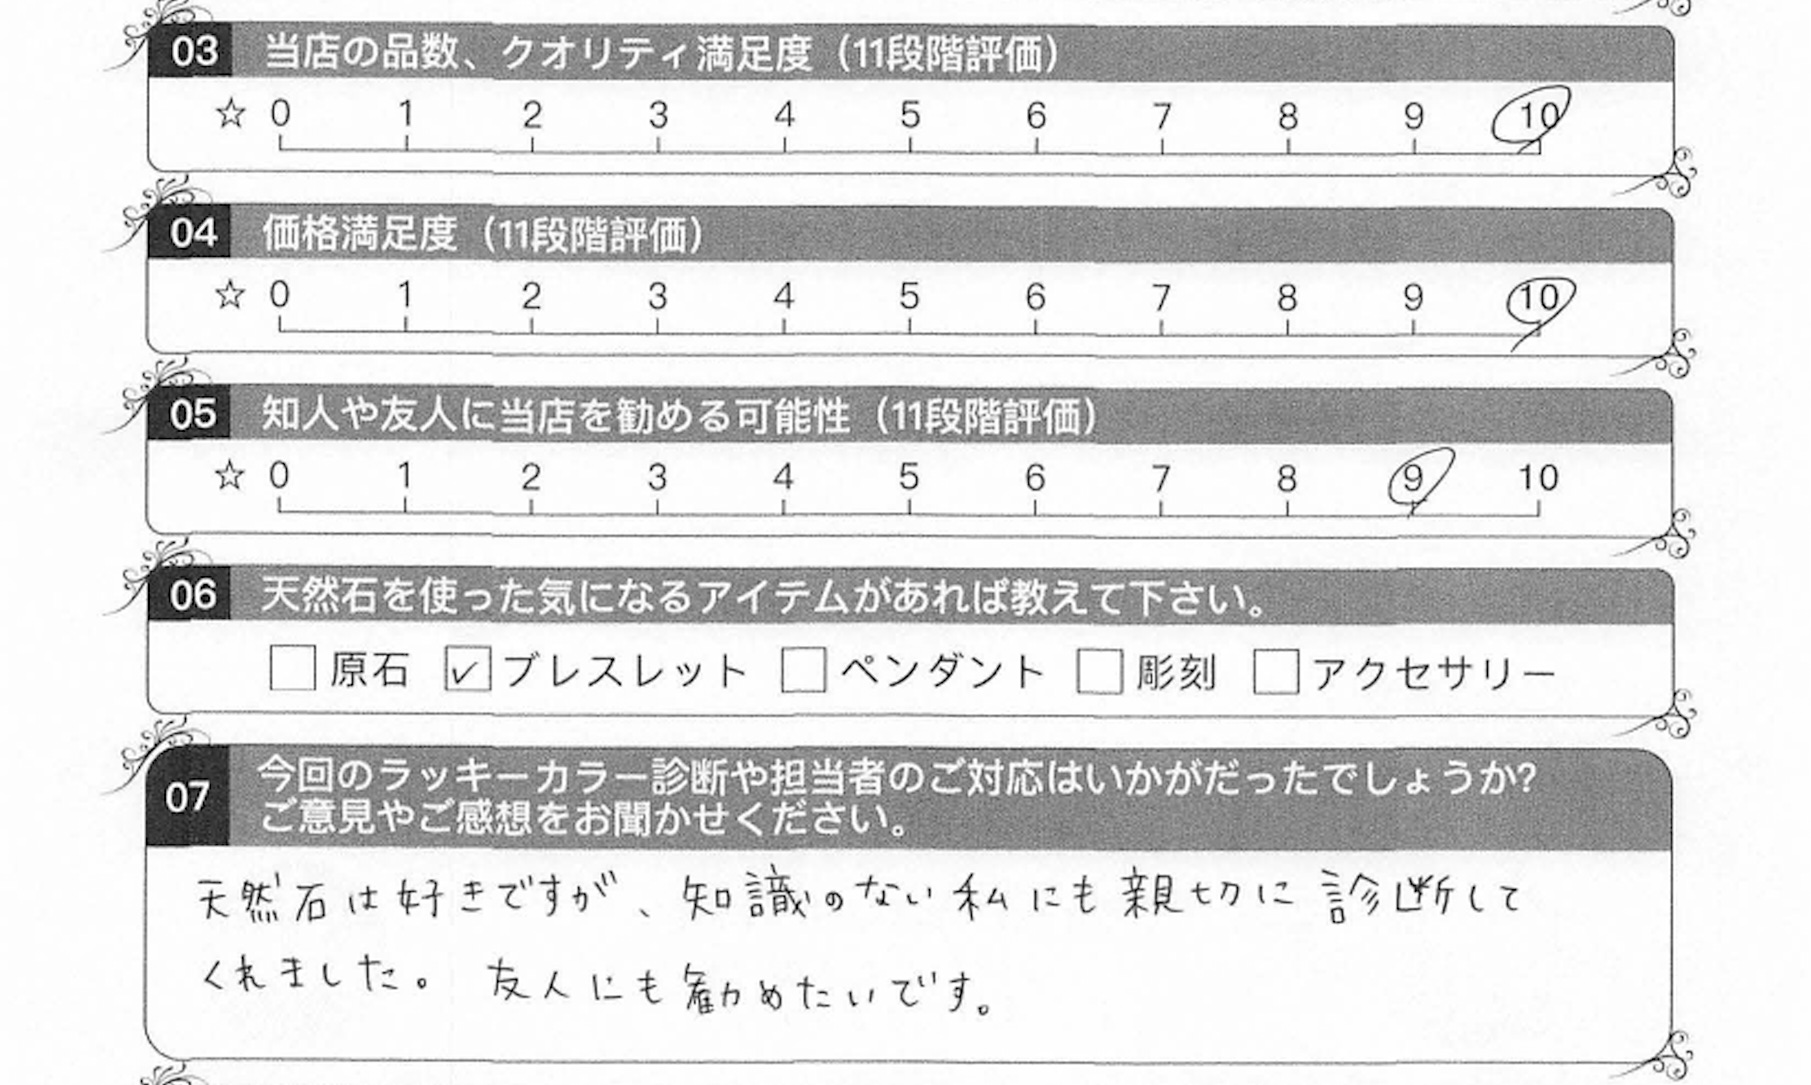 03 当店の品数、クオリティ満足度（11段階評価）
☆ 0 1 2 3 4 5 6 7 8 9 10
04 価格満足度（11段階評価）
☆ 0 1 2 3 4 5 6 7 8 9 10
05 知人や友人に当店を勧める可能性（11段階評価）
☆ 0 1 2 3 4 5 6 7 8 9 10
06 天然石を使った気になるアイテムがあれば教えて下さい。
原石 ブレスレット ペンダント 彫刻 アクセサリー
07 今回のラッキーカラー診断や担当者のご対応はいかがだったでしょうか?
ご意見やご感想をお聞かせください。
天然石は好きですが、知識のない私にも親切に診断して
くれました。友人にも勧めたいです。